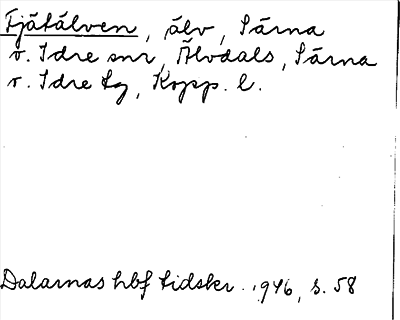 Fjätälven, älv, Särna
o. Idre snr, Älvdals, Särna
o. Idre tg, Kopp. l.
Dalarnas hbf tidskr. 1946, s. 58